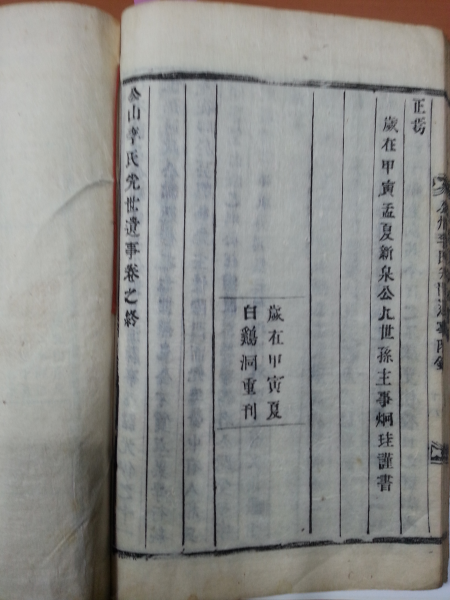 正葊
歲在甲寅孟夏新泉公九世孫主事炯珪謹書
歲在甲寅夏
白鷄洞重刊
公山李氏先世遺事卷之終